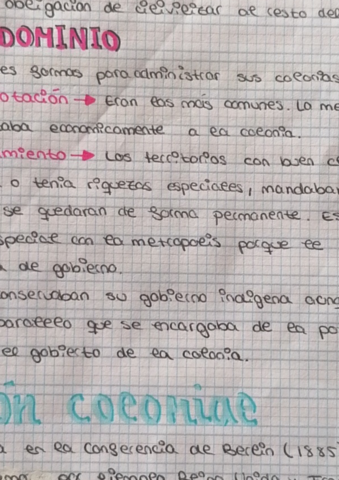 obligación de civilizar al resto del
DOMINIO
es formas para administrar sus colonias
otación → Eran las más comunes. La me
aba económicamente a la colonia.
miento → Los territorios con buen c
o tenia riquezas especiales, mandaba
se quedaran de forma permanente. Es
special con la metropolis porque le
de gobierno.
onservaban su gobierno indígena aunq
paralelo que se encargaba de la po
el gobierto de la colonia.
ón colonial
a en la conferencia de Berlín (1885
por ejemplo Reino Unido y Fr